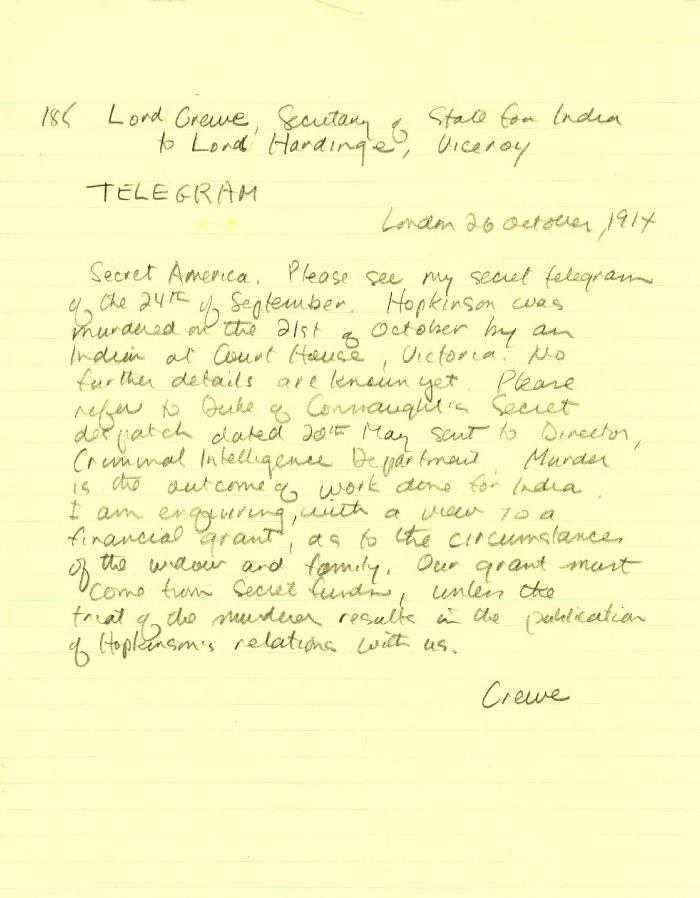 186 Lord Crewe, Secretary of State for India
to Lord Hardinge, Viceroy
TELEGRAM
London 26 October, 1914
Secret America. Please see my secret telegram
of the 24th of September. Hopkinson was
murdered on the 21st of October by an
Indian at Court House, Victoria. No
further details are known yet. Please
refer to Duke of Connaught's Secret
despatch dated 20th May sent to Director,
Criminal Intelligence Department. Murder
is the outcome of work done for India.
I am enquiring, with a view to a
financial grant, as to the circumstances
of the widow and family. Our grant must
come from Secret funds, unless the
trial of the murderer results in the publication
of Hopkinson's relations with us.
Crewe